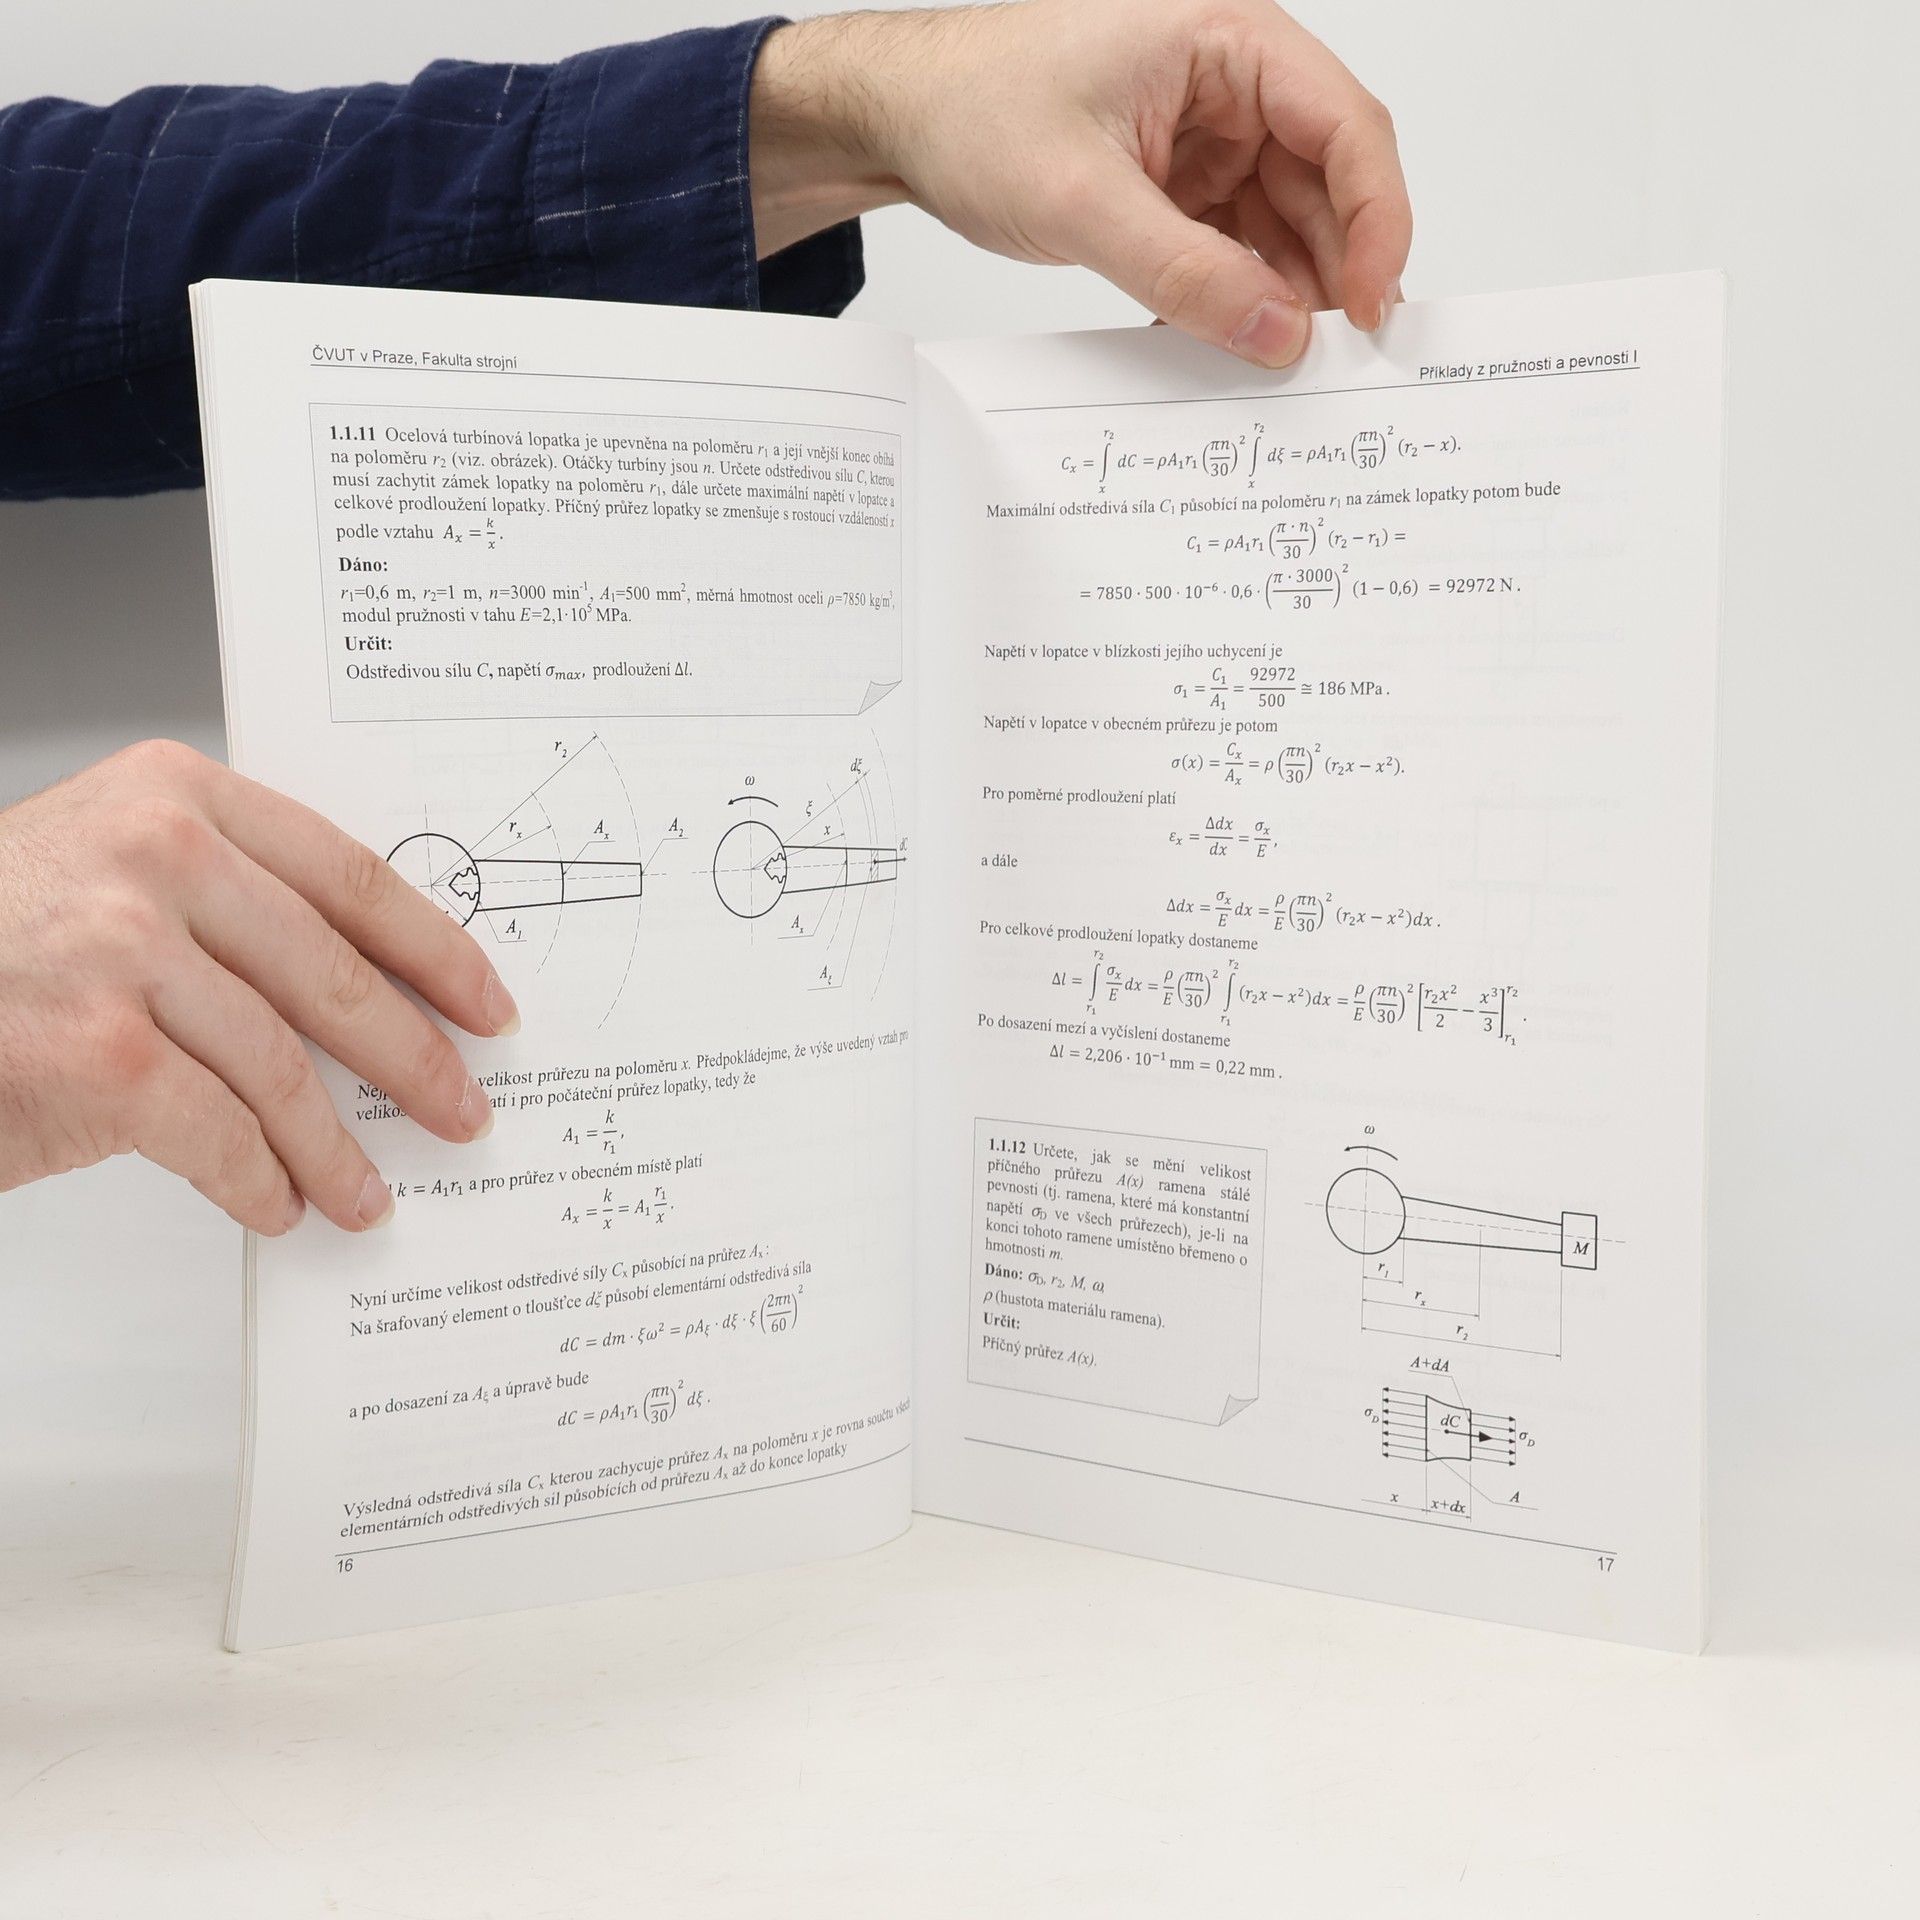 ČVUT v Praze, Fakulta strojní
1.1.11 Ocelová turbínová lopatka je upevněna na poloměru r₁ a její vnější konec obíhá
na poloměru r₂ (viz. obrázek). Otáčky turbíny jsou n. Určete odstředivou sílu C, kterou
musí zachytit zámek lopatky na poloměru r₁, dále určete maximální napětí v lopatce a
celkové prodloužení lopatky. Příčný průřez lopatky se zmenšuje s rostoucí vzdáleností x
podle vztahu Aₓ = k/x.
Dáno:
r₁=0,6 m, r₂=1 m, n=3000 min⁻¹, A₁=500 mm², měrná hmotnost oceli ρ=7850 kg/m³,
modul pružnosti v tahu E=2,1·10⁵ MPa.
Určit:
Odstředivou sílu C, napětí σmax, prodloužení Δl.
r₂
rₓ
Aₓ
A₂
A₁
ω
ξ
dξ
x
dC
Aₓ
Aξ
velikost průřezu na poloměru x. Předpokládejme, že výše uvedený vztah pro
i pro počáteční průřez lopatky, tedy že
A₁ = k/r₁,
k = A₁r₁ a pro průřez v obecném místě platí
Aₓ = k/x = A₁ r₁/x.
Nyní určíme velikost odstředivé síly Cₓ působící na průřez Aₓ:
Na šrafovaný element o tloušťce dξ působí elementární odstředivá síla
dC = dm · ξω² = ρAξ · dξ · ξ (2πn/60)²
a po dosazení za Aξ a úpravě bude
dC = ρA₁r₁ (πn/30)² dξ.
Výsledná odstředivá síla Cₓ kterou zachycuje průřez Aₓ na poloměru x je rovna součtu všech
elementárních odstředivých sil působících od průřezu Aₓ až do konce lopatky
16
Příklady z pružnosti a pevnosti I
Cₓ = ∫ₓ^r₂ dC = ρA₁r₁ (πn/30)² ∫ₓ^r₂ dξ = ρA₁r₁ (πn/30)² (r₂ − x).
Maximální odstředivá síla C₁ působící na poloměru r₁ na zámek lopatky potom bude
C₁ = ρA₁r₁ (π · n/30)² (r₂ − r₁) =
= 7850 · 500 · 10⁻⁶ · 0,6 · (π · 3000/30)² (1 − 0,6) = 92972 N.
Napětí v lopatce v blízkosti jejího uchycení je
σ₁ = C₁/A₁ = 92972/500 ≅ 186 MPa.
Napětí v lopatce v obecném průřezu je potom
σ(x) = Cₓ/Aₓ = ρ (πn/30)² (r₂x − x²).
Pro poměrné prodloužení platí
εₓ = Δdx/dx = σₓ/E,
a dále
Δdx = σₓ/E dx = ρ/E (πn/30)² (r₂x − x²)dx.
Pro celkové prodloužení lopatky dostaneme
Δl = ∫r₁^r₂ σₓ/E dx = ρ/E (πn/30)² ∫r₁^r₂ (r₂x − x²)dx = ρ/E (πn/30)² [r₂x²/2 − x³/3]r₁^r₂.
Po dosazení mezí a vyčíslení dostaneme
Δl = 2,206 · 10⁻¹ mm = 0,22 mm.
1.1.12 Určete, jak se mění velikost
příčného průřezu A(x) ramena stálé
pevnosti (tj. ramena, které má konstantní
napětí σD ve všech průřezech), je-li na
konci tohoto ramene umístěno břemeno o
hmotnosti m.
Dáno: σD, r₂, M, ω,
ρ (hustota materiálu ramena).
Určit:
Příčný průřez A(x).
ω
M
r₁
rₓ
r₂
A+dA
σD
dC
σD
A
x
x+dx
17